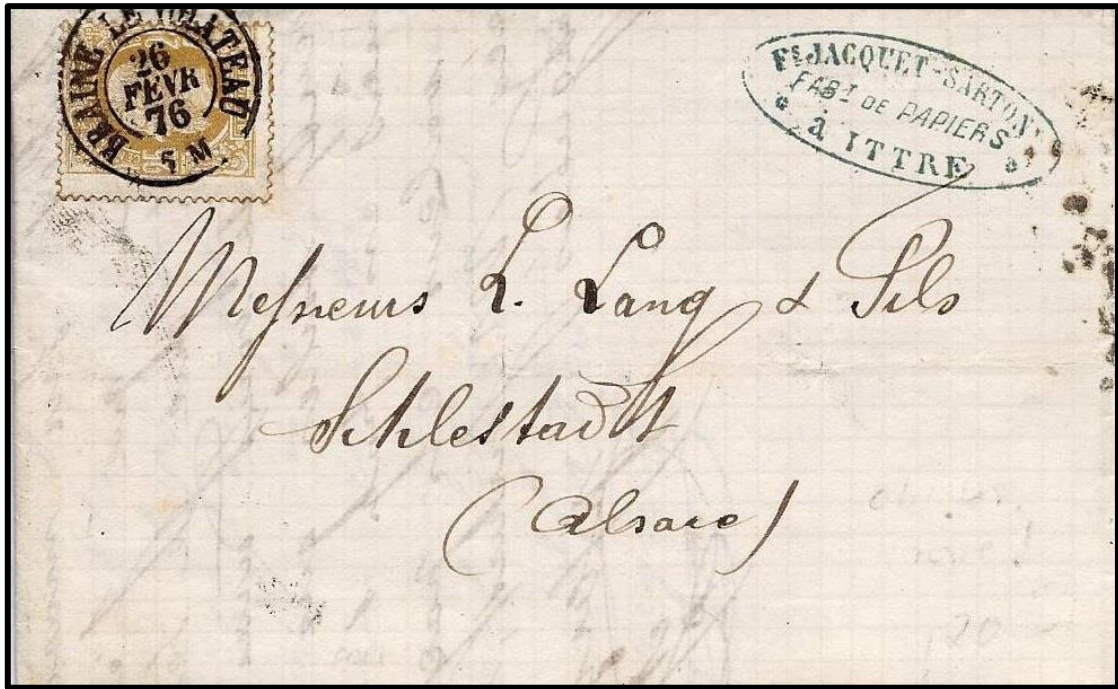 BRAINE LE CHATEAU
26
FEVR
76
5 M
Fs JACQUET-SARTON
FABT DE PAPIERS
à ITTRE
Messieurs L. Lang & Fils
Schlestadt
(Alsace)